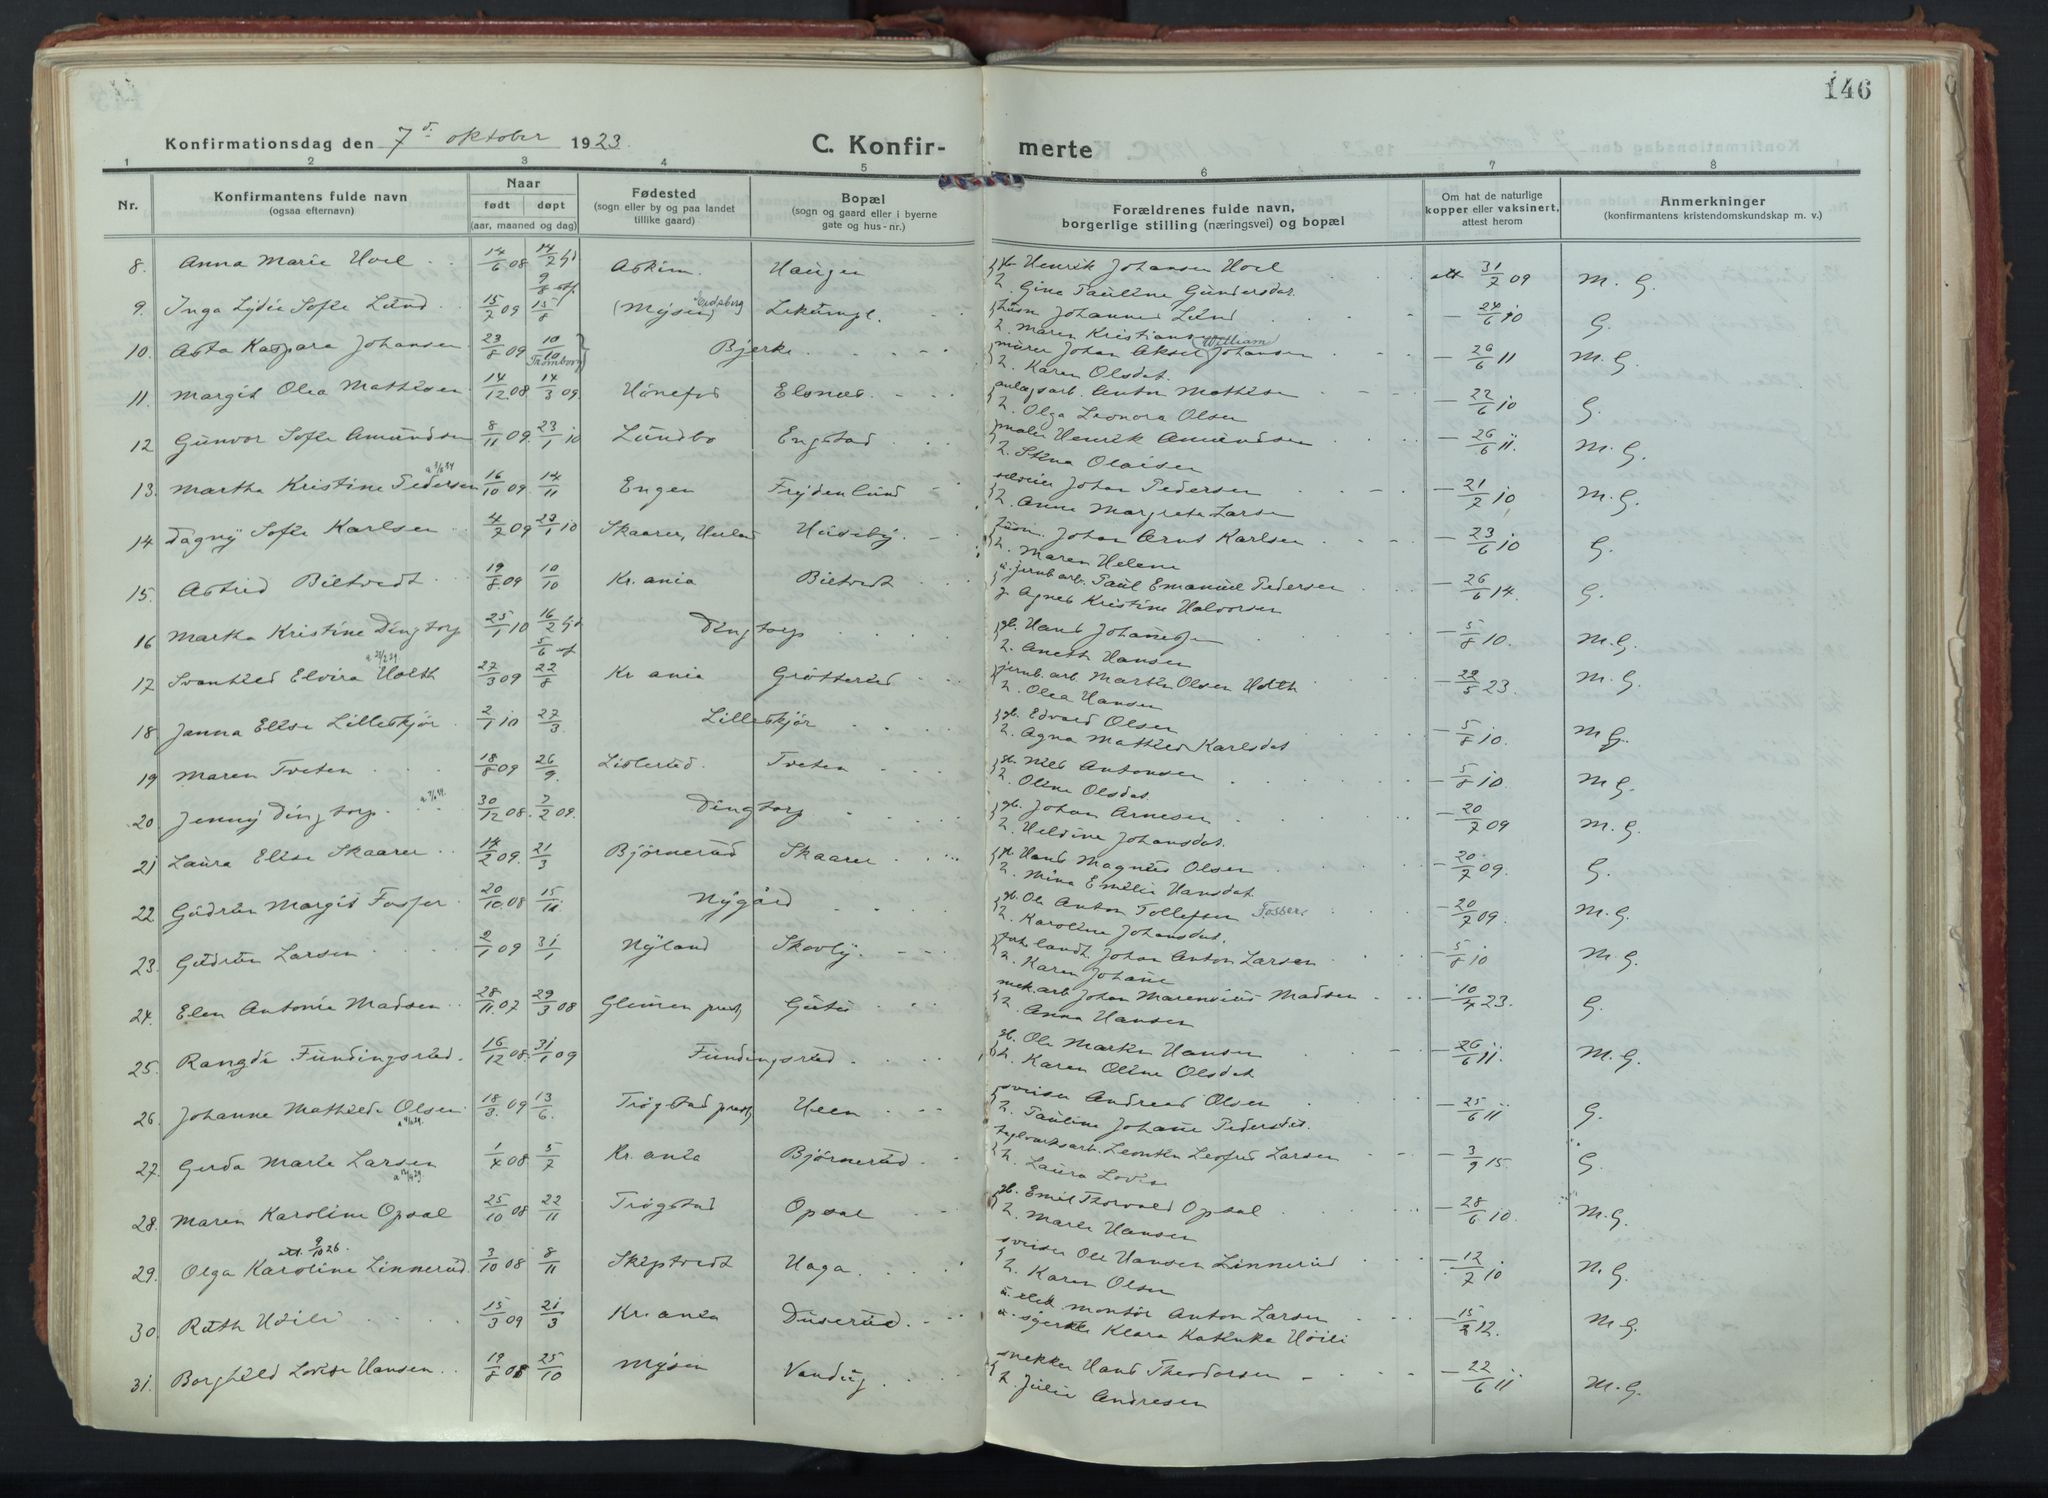 146
Konfirmationsdag den 7de oktober 1923. C. Konfirmerte
1 2 3 4 5 6 7 8
Nr. Konfirmantens fulde navn (ogsaa efternavn) Naar født døpt (aar, maaned og dag) Fødested (sogn eller by og paa landet tillike gaard) Bopæl (sogn og gaard eller i byerne gate og hus-nr.) Forældrenes fulde navn, borgerlige stilling (næringsvei) og bopæl Om hat de naturlige kopper eller vaksinert, attest herom Anmerkninger (konfirmantens kristendomskundskap m. v.)
8. Anna Marie Hoel 14/6 08 14/7 hj 9/8 stf. Askim Haugen gb. Henrik Johansen Hoel att 31/7 09 M. G.
2. Gina Pauline Gundersdat.
9. Inga Lydie Sofie Lund 15/2 09 15/8 (Mysen) Eidsberg Lekumgl. Johannes Lund – 24/6 10 G.
2. Maren Kristians
10. Asta Kaspara Johansen 23/8 09 10/10 Tromborg Bjerke murer Johan Aksel William Johansen – 26/6 11 M. G.
2. Karen Olsdat.
11. Margit Olea Mathisen 14/12 08 14/3 09. Hønefos Elsnes anlægsarb. Anton Mathisen – 22/6 10 G.
2. Olga Leonora Olsen
12 Gunvor Sofie Amundsen 8/11 09. 23/1 10 Lundbo Engstad maler Henrik Amundsen – 26/6 11. M. G.
2. Stina Olaisen
13. Martha Kristine Pedersen 16/10 09. 14/11 Engen Frydenlund Johan Pedersen – 21/7 10 M. G.
2. Anne Margrete Larsen
14 Dagny Sofie Karlsen 4/7 09 23/1 10 Skaarer, Herland Huseby. Johan Arnt Karlsen – 23/6 10 G.
2. Maren Helene
15. Astrid Biltvedt 19/8 09 10/10 Kr.ania Biltvedt u. jernb.arb. Paul Emanuel Pedersen – 26/6 14. G.
p. Agnes Kristine Halvorsen
16 Martha Kristine Dingtorp 25/1 10 16/2 hj 5/6 stf Dingtorp gb. Hans Johannessen – 5/8 10. M. G.
2. Aneth Hansen
17 Svanhild Elvira Holth 27/3 09 22/8 Kr ania Grøtterud jernb.arb Martin Olsen Holth – 22/5 23. M. G.
2. Olea Hansen
18. Janna Elise Lilleskjør 2/1 10 27/3. Lilleskjør gb. Edvard Olsen – 5/8 10. M G.
2. Agna Mathild Karlsdat
19 Maren Tveten 18/8 09 26/9. Lislerud. Tveten gb. Nils Antonsen – 5/8 10 M. G.
2. Oline Olsdat.
20 Jenny Dingtorp 30/12 08. 7/2 09. Dingtorp gb. Johan Arnesen – 20/7 09 M. G.
2. Heldine Johansdat.
21 Laura Elise Skaarer 14/2 09. 21/3 Bjørnerud Skaarer gb. Hans Magnus Olsen – 20/7 09. G.
2. Mina Emilie Hansdat
22. Gudrun Margit Fosser 20/10 08 15/11. Nygård gb. Ole Anton Tollefsen Fosser – 20/7 09. M. G.
2. Karoline Johansdat.
23. Gudrun Larsen 2/1 09 31/1 Nyland Skovly. forh. landh. Johan Anton Larsen – 5/8 10 M. G.
2. Karen Johane
24. Elen Antonie Madsen 28/11 07 29/3 08 Glemmen prestg. Gutu mek.arb Johan Marensius Madsen – 10/4 23. G.
2. Anna Hansen
25. Rangdi Fundingsrud. 16/12 08. 31/1 09 Fundingsrud gb. Ole Martin Hansen – 26/6 11. M. G.
2. Karen Oline Olsdat
26. Johanne Mathilde Olsen 18/3. 09 13/6. Trøgstad prestg. Heen sveiser Andreas Olsen – 25/6 11 G.
2. Pauline Johane Pedersdat.
27. Gerda Marie Larsen 1/4 08 5/7 Kr.ania Bjørnerud teglverksarb. Leontin Leofred Larsen – 3/9 15. G.
2. Laura Lovise
28. Maren Karoline Opsal 25/10 08 22/11 Trøgstad Opsal gb. Emil Thorvald Opsal – 28/6 10. M. G.
2. Marie Hansen
att. 9/10 26.
29. Olga Karoline Linnerud 3/10 08 8/11 Skiptvedt Haga sveiser Ole Hansen Linnerud – 12/7 10 N. G.
2. Karen Olsen
30. Ruth Høili 15/3 09 21/3 Kr.ania Duserud. u. elek. montør Anton Larsen – 15/2 12. M. G.
u. Klara Kathinka Høili
31. Borghild Lovise Hansen 19/8 08 25/10 Mysen Vandug snekker Hans Theodorsen – 22/6 11 M. G.
2. Julie Andresen